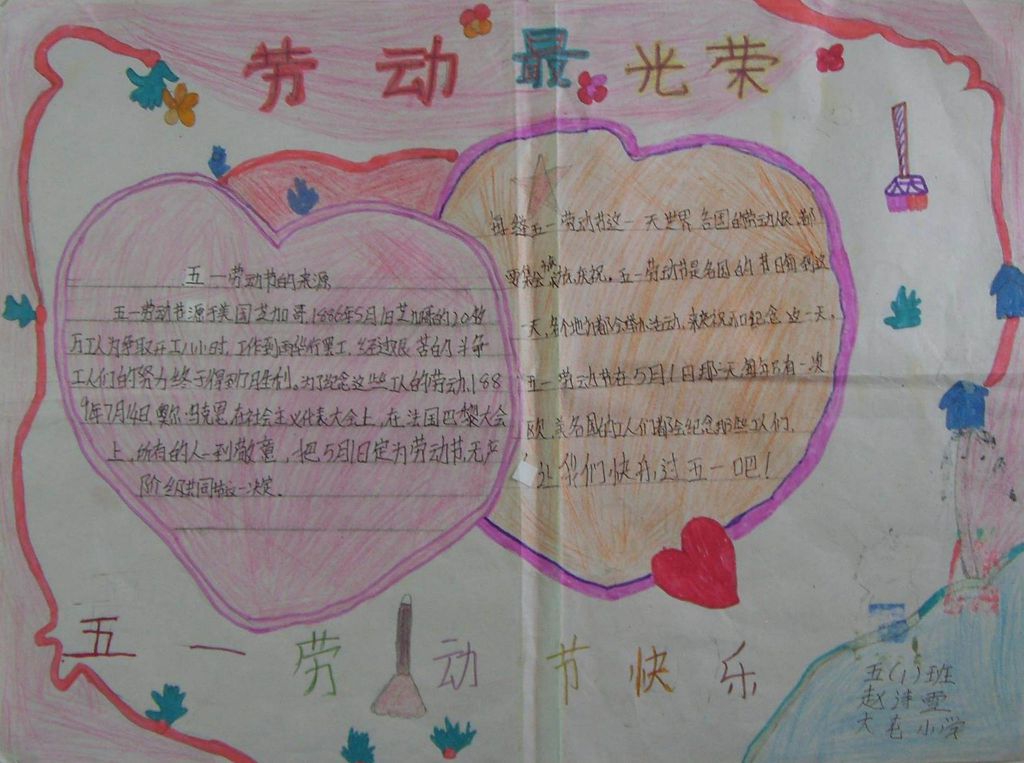 劳动最光荣
五一劳动节的来源
五一劳动节源于美国芝加哥,1886年5月1日芝加哥的20多
万工人为争取开工八小时,工作到而举行罢工,经过艰苦的斗争
工人们的努力终于得到了胜利,为了纪念这些工人的劳动,188
9年7月14日,奥尔冯克思在社会主义代表大会上,在法国巴黎大会
上,所有的人一到敬意,把5月1日定为劳动节,无产
阶级共同的一决定.
每逢五一劳动节这一天世界各国的劳动人民都
要集会 庆祝。五一劳动节是各国的节日每到这
一天,各个地方都会举办活动,来庆祝和纪念这一天。
五一劳动节在5月1日那一天每年只有一次
欧美各国的工人们都会纪念那些工人们.
让我们快乐过五一吧!
五一劳动节快乐
五(1)班
赵诗雪
大屯小学